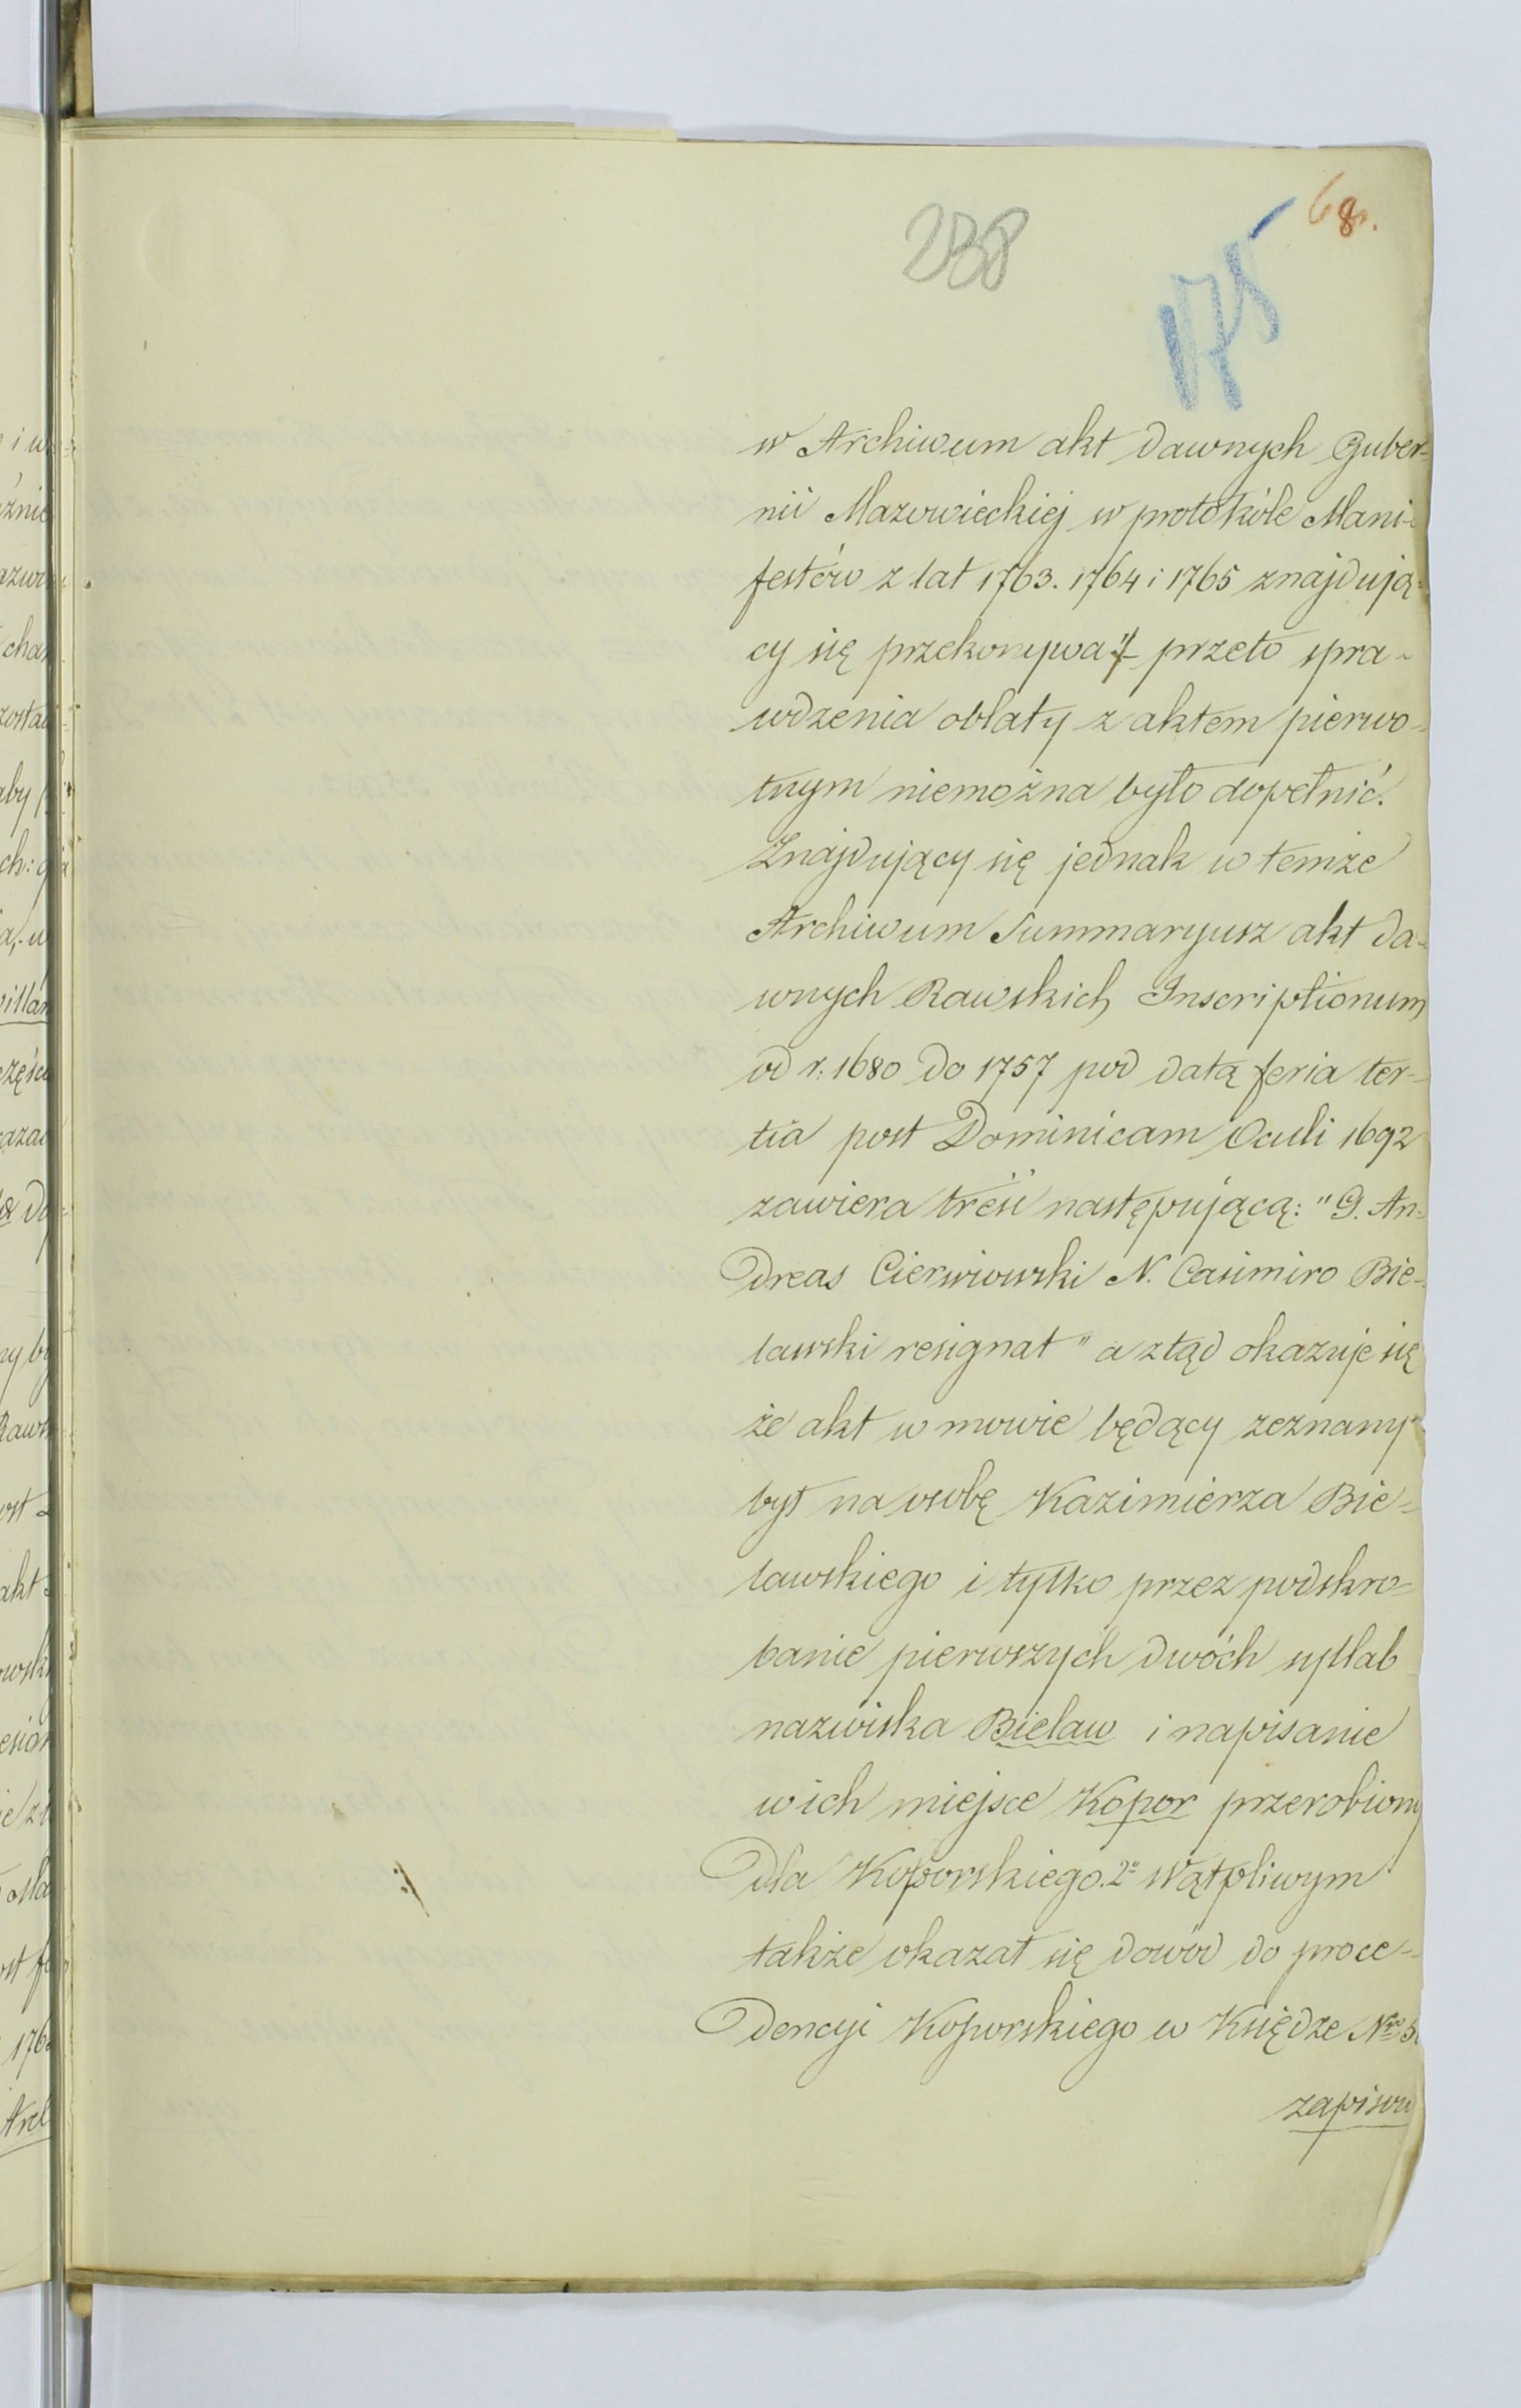 68.
238
175
w Archiwum akt dawnych Guber-
nii Mazowieckiej w protokóle Mani-
festów z lat 1763. 1764 i 1765 znajdują-
cy się przekonywa:/ przeto spra-
wdzenia oblaty z aktem pierwo-
tnym niemożna było dopełnić.
Znajdujący się jednak w temże
Archiwum Summaryusz akt da-
wnych Rawskich Inscriptionum
od r: 1680 do 1757 pod datą feria ter-
tia post Dominicam Oculi 1692
zawiera treść następującą: "G. An-
dreas Cierwiowski N. Casimiro Bie-
lawski resignat" a ztąd okazuje się
że akt w mowie będący zeznany
był na osobę Kazimierza Bie-
lawskiego i tylko przez podskro-
banie pierwszych dwóch syllab
nazwiska Bielaw i napisanie
w ich miejsce Kopor przerobiony
dla Koporskiego. 2º Wątpliwym
także okazał się dowód do proce-
dencyi Koporskiego w Księdze Nro
zapisów